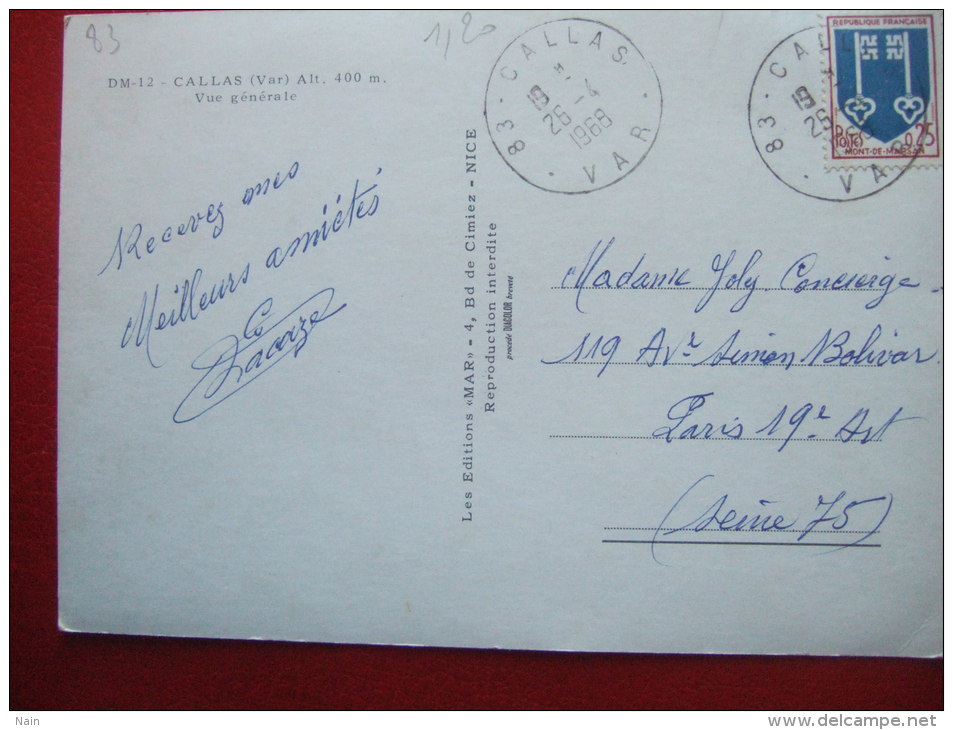 83
1,20
DM-12 - CALLAS (Var) Alt. 400 m.
Vue générale
Recevez mes
Meilleurs amitiés
Lacaze
Les Editions «MAR» - 4, Bd de Cimiez - NICE
Reproduction interdite
procédé DIACOLOR breveté
83 - CALLAS
19 H
26 -4
1968
VAR
83 - CALLAS
19
26
VAR
REPUBLIQUE FRANÇAISE
POSTES 0,25
MONT-DE-MARSAN
Madame Joly Concierge
119 Avr Simon Bolivar
Paris 19e Art
(Seine 75)
Nain
www.delcampe.net